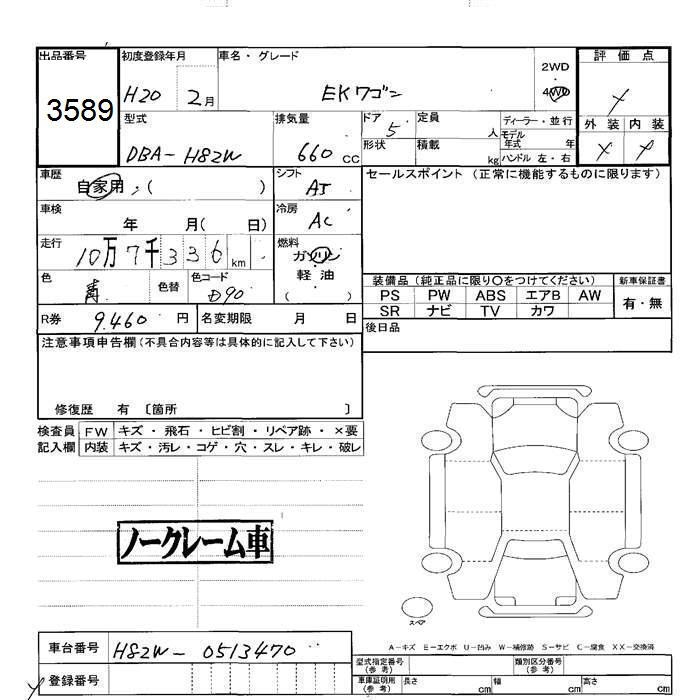 出品番号
3589
初度登録年月
H20 2月
車名・グレード
EKワゴン
2WD
4WD
評価点
外装 内装
型式
DBA-H82W
排気量
660 cc
ドア
5
定員
人
形状
積載
kg
ディーラー・並行
モデル年式 年
ハンドル 左・右
車歴
自家用・( )
シフト
AT
セールスポイント (正常に機能するものに限ります)
車検
年 月( 日)
冷房
AC
走行
10万7千336 km
燃料
ガソリン
軽油
( )
色
青
色替
色コード
D90
装備品 (純正品に限り〇をつけてください)
新車保証書
PS PW ABS エアB AW
SR ナビ TV カワ
有・無
R券 9.460 円
名変期限 月 日
後日品
注意事項申告欄 (不具合内容等は具体的に記入して下さい)
修復歴 有 〔箇所 〕
検査員
記入欄
FW キズ・飛石・ヒビ割・リペア跡・×要
内装 キズ・汚レ・コゲ・穴・スレ・キレ・破レ
ノークレーム車
スペア
A-キズ E-エクボ U-凹み W-補修跡 S-サビ C-腐食 XX-交換済
車台番号
H82W-0513470
登録番号
型式指定番号
(参考)
類別区分番号
(参考)
車庫証明用
(参考)
長さ cm
幅 cm
高さ cm